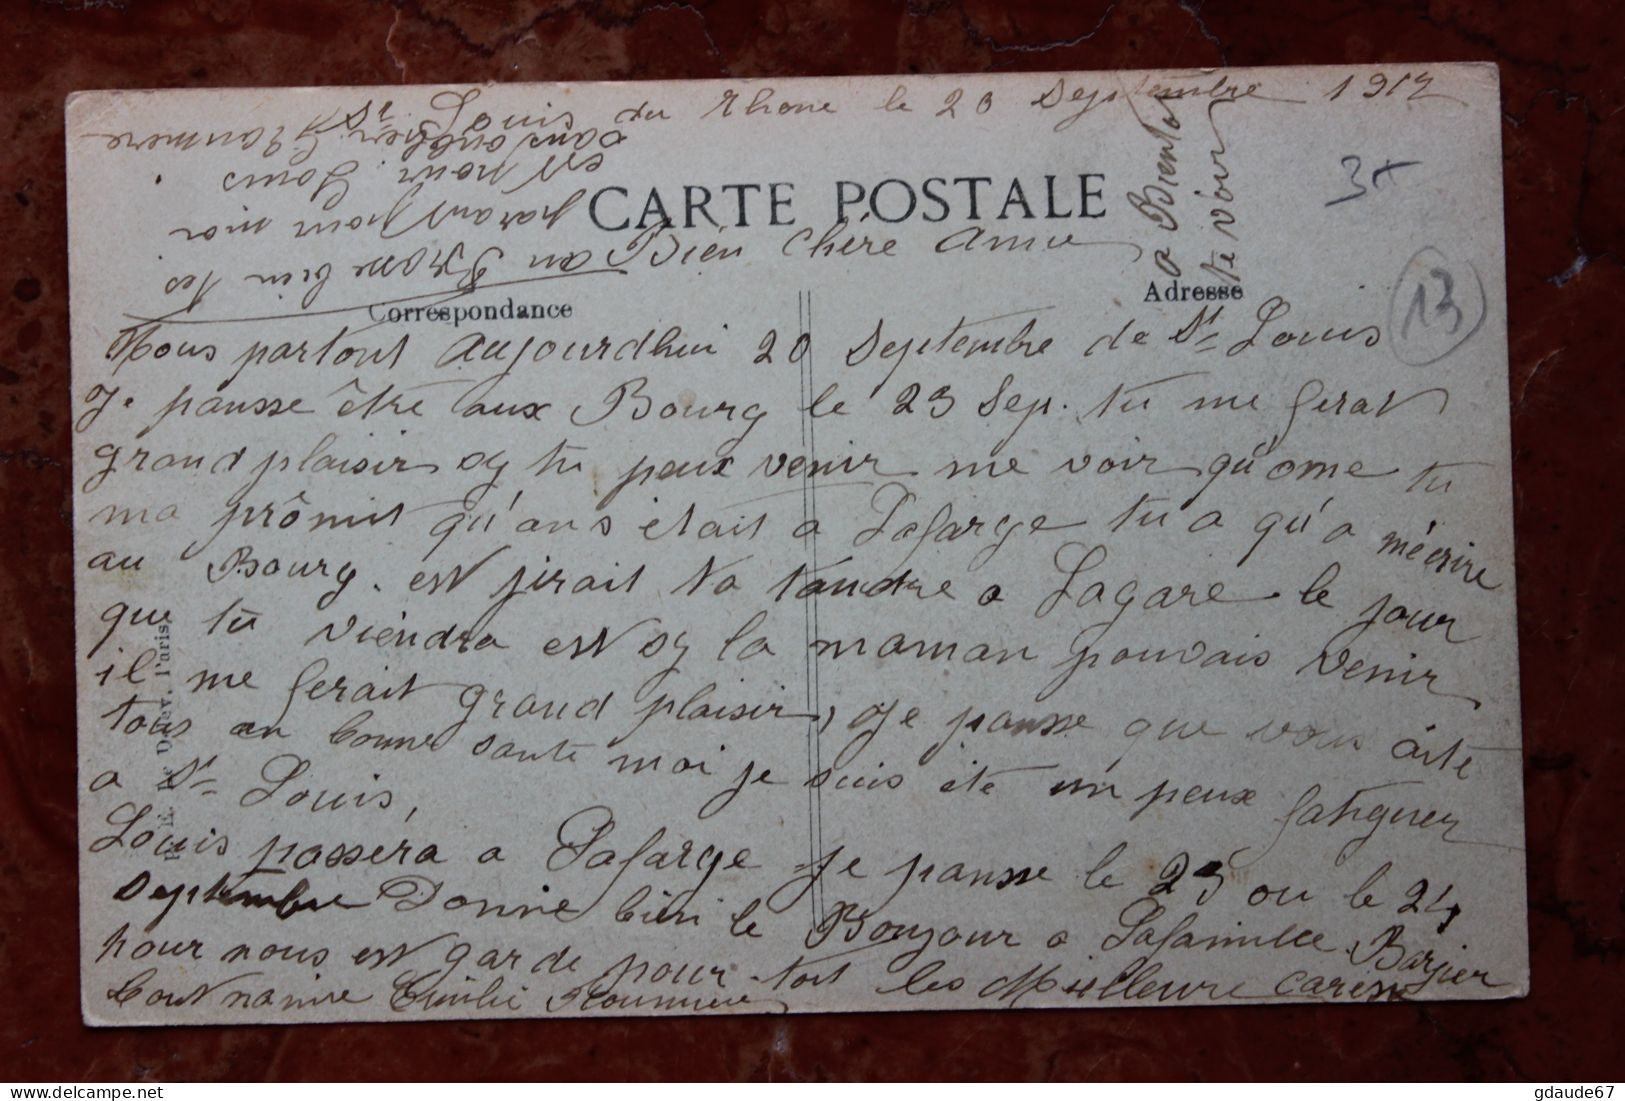 St Louis du Rhone le 20 Septembre 1917
CARTE POSTALE
Bien chère Amie
a Bientot
te voir
Correspondance
Adresse
3+
13
Nous partont Aujourdhui 20 Septembre de St Louis
Je pansse être aux Bourg le 23 Sep. tu me ferat
grand plaisir sy tu peux venir me voir qu'ome tu
ma prômit qu'ans était a Lafarge tu a qu'a mécrire
au Bourg. est jirait ta tandre a Lagare le jour
que tu viendra est sy la maman pouvais venir
il me ferait grand plaisir, Je pansse que vous aite
tous an bonne sante moi je suis été un peux fatiguer
a St Louis,
Louis passéra a Lafarge Je pansse le 23 ou le 24
Septembre Donne bien le Bonjour a Lafamille Barjier
pour nous est garde pour toit les Meilleure caresse
Emilie Roumieu
est pour Louis
parant pour moi
an Brasse bien tes
Paris
gdaude67